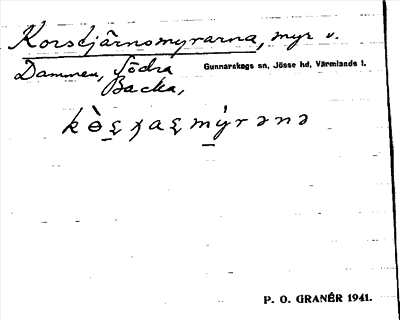 Korstjärnsmyrarna, myr v.
Dammen, Södra
Backa,
Gunnarskogs sn, Jösse hd, Värmlands l.
P. O. GRANÉR 1941.